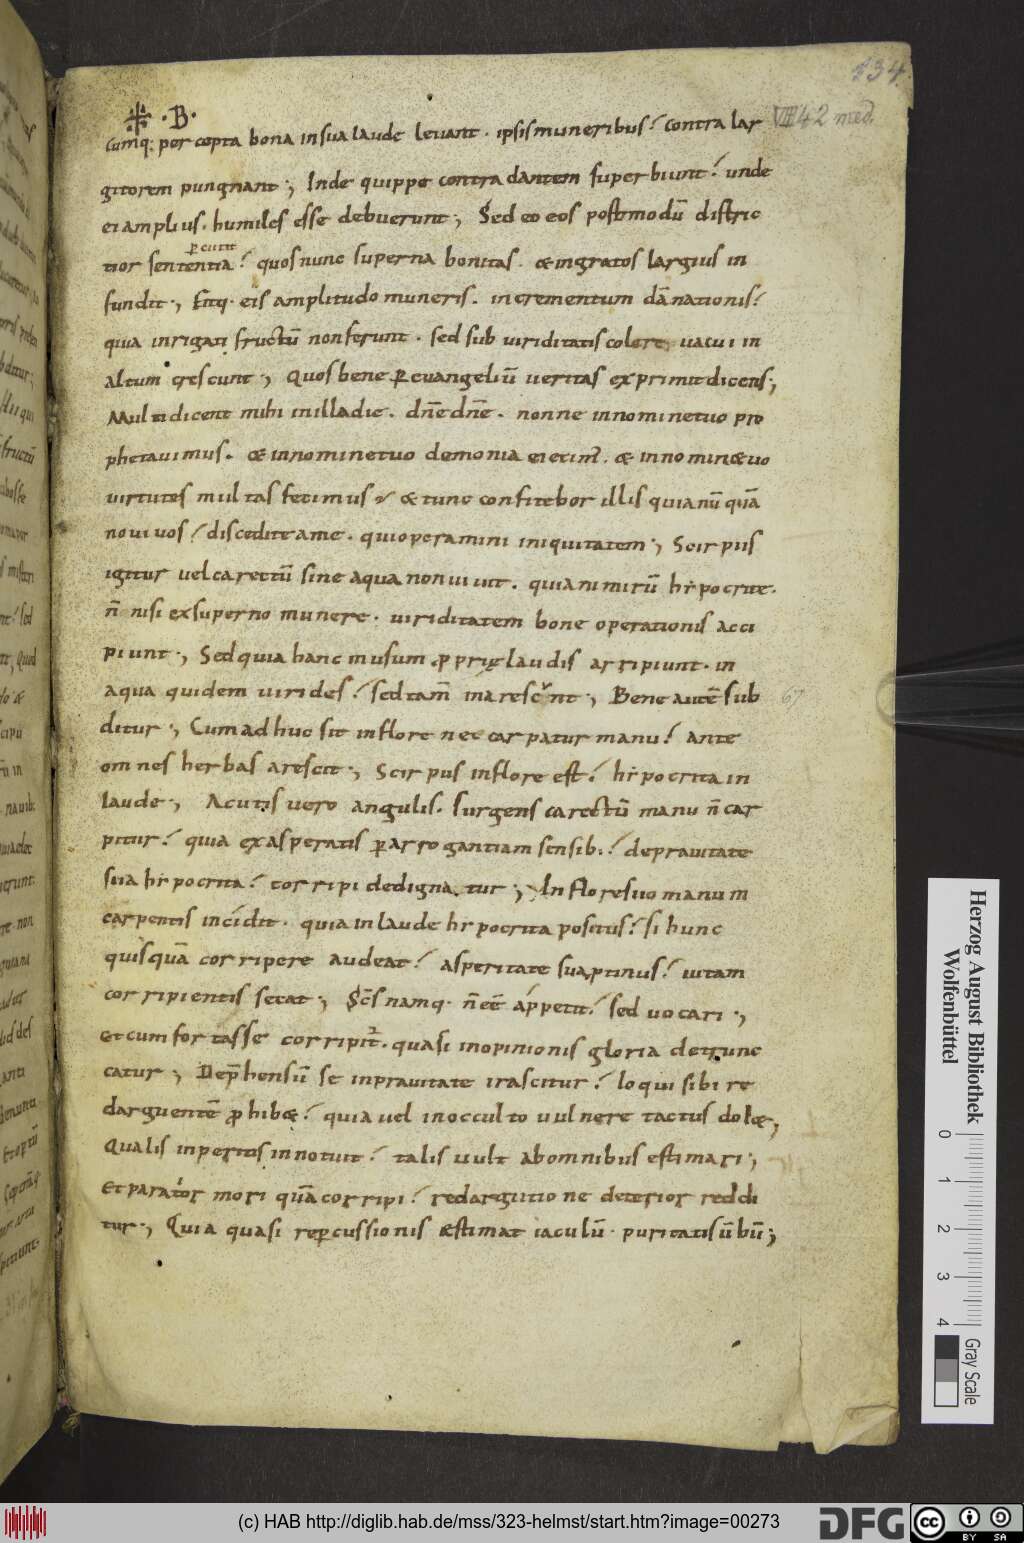 134
·B·
VIII 42 med.
cumq; per cepta bona in sua laude levant · ipsis muneribus? contra lar
gitorem pungnant ·, Inde quippe contra dantem superbiunt? unde
ei amplius · humiles esse debuerunt ·, Sed eo eos postmodū distric
p cutit
tior sententia? quos nunc superna bonitas · & ingratos largius in
fundit ·, Fitq· eis amplitudo muneris · incrementum dānationis?
quia inrigati fructū non ferunt · sed sub viriditatis colore, vacui in
altum crescunt ·, Quos bene p evangeliū veritas exprimit dicens ·,
Multi dicent mihi in illa die · dn̄e dn̄e · nonne in nomine tuo pro
phetavimus · & in nomine tuo demonia eiecim᷒ · & in nomin& uo
virtutes multas fecimus & tunc confitebor illis quia nū quā
novi vos? discedite a me · qui operamini iniquitatem ·, Scirpus
igitur vel carectū sine aqua non vivit · quia nimirū hẏpocrite ·
n̄ nisi ex superno munere · viriditatem bone operationis acci
piunt ·, Sed quia hanc in usum pprię laudis arripiunt · in
aqua quidem virides? sed tam̄ inarescunt ·, Bene autē sub
67
ditur ·, Cum adhuc sit in flore nec carpatur manu? ante
omnes herbas arescit ·, Scirpus in flore est? hẏpocrita in
laude ·, Acutis vero angulis · surgens carectū manu n̄ car
pitur? quia exasperatis p arrogantiam sensib;? de pravitate
sua hẏpocrita? corripi dedignatur ·, In flore suo manum
carpentis incidit · quia in laude hẏpocrita positus? si hunc
quisquā corripere audeat? asperitate sua ptinus? vitam
corripientis secat ·, Sc̄s namq· n̄ eē appetit? sed vocari ·,
Et cum fortasse corripit᷒ · quasi in opinionis gloria detrunc
catur ·, Dep̄hensū se in pravitate irascitur? loqui sibi re
darguentē phib&? quia vel in occulto vulnere tactus dol& ·,
Qualis inperitis innotuit? talis vult ab omnibus estimari ·,
Et parator mori quā corripi? redargutione deterior reddi
tur ·, Quia quasi repcussionis ęstimat iaculū · puritatis ūbū ·,
Herzog August Bibliothek
Wolfenbüttel
0 1 2 3 4
Gray Scale
(c) HAB http://diglib.hab.de/mss/323-helmst/start.htm?image=00273
DFG
cc BY SA